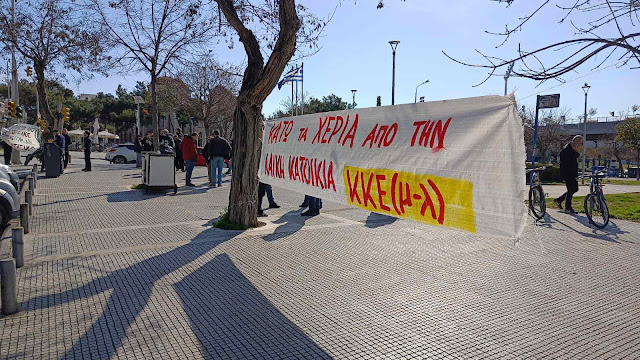 ΚΑΤΩ ΤΑ ΧΕΡΙΑ ΑΠΟ ΤΗΝ
ΛΑΪΚΗ ΚΑΤΟΙΚΙΑ ΚΚΕ(μ-λ)